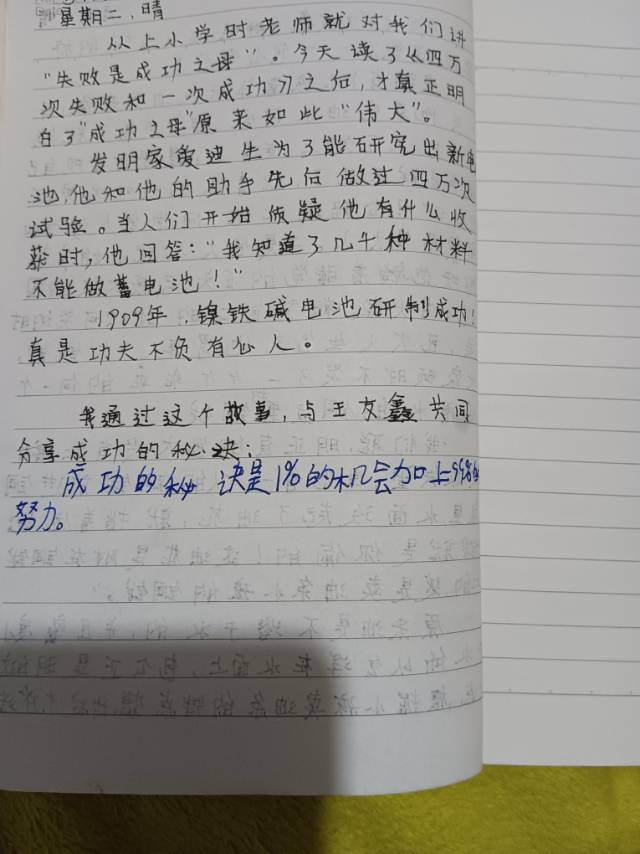 星期二,晴
从上小学时老师就对我们讲
“失败是成功之母”。今天读了《四万
次失败和一次成功》之后,才真正明
白了“成功之母”原来如此“伟大”。
发明家爱迪生为了能研究出新电
池,他和他的助手先后做过四万次
试验。当人们开始怀疑他有什么收
获时,他回答:“我知道了几千种材料
不能做蓄电池!”
1909年,镍铁碱电池研制成功!
真是功夫不负有心人。
我通过这个故事,与王友鑫共同
分享成功的秘诀:
成功的秘诀是1%的机会加上99%的
努力。